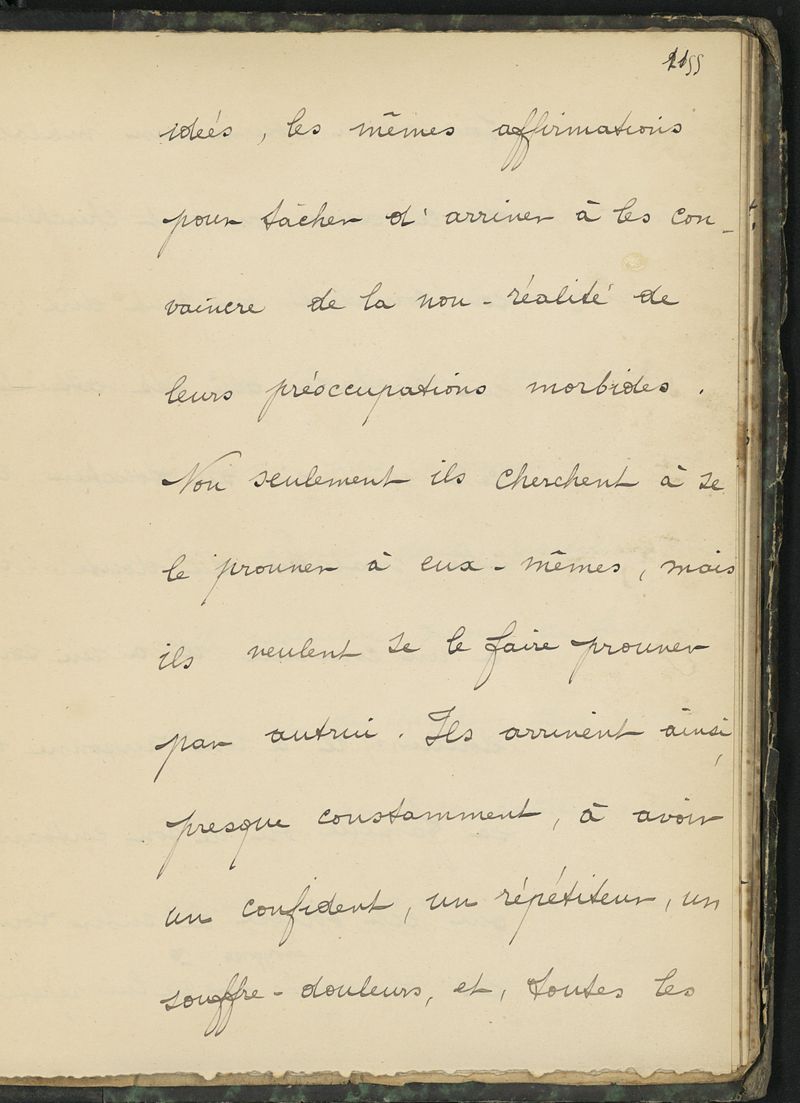 idées, les mêmes affirmations
pour tâcher d'arriver à les con-
vaincre de la non-réalité de
leurs préoccupations morbides.
Non seulement ils cherchent à se
le prouver à eux-mêmes, mais
ils veulent se le faire prouver
par autrui. Ils arrivent ainsi,
presque constamment, à avoir
un confident, un répétiteur, un
souffre-douleurs, et, toutes les